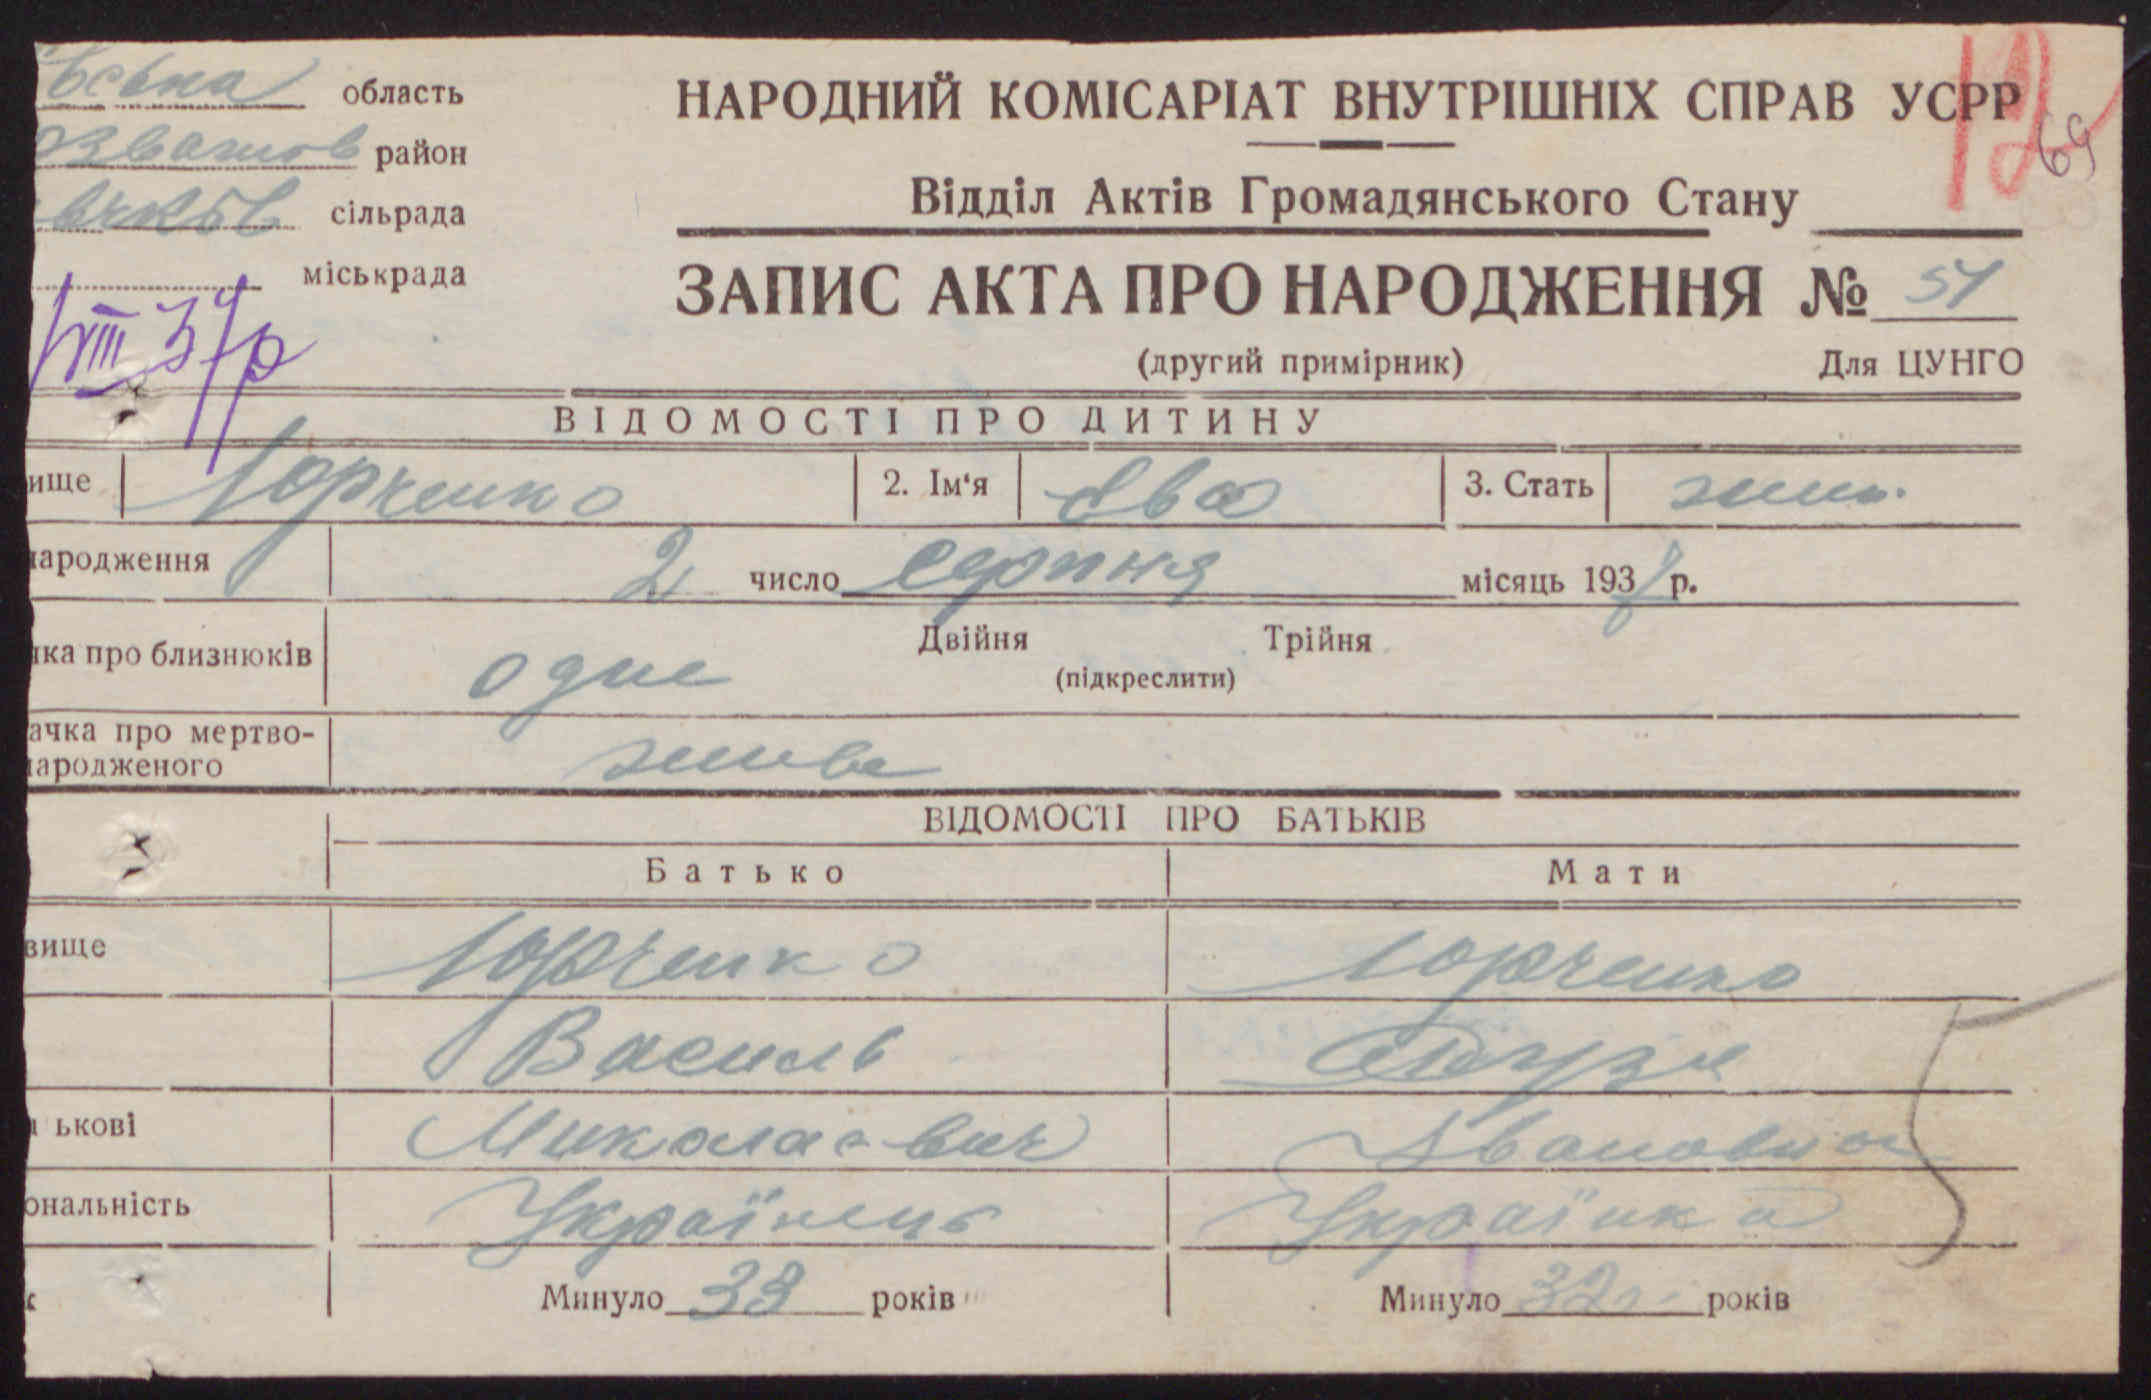 вська область
озважов район
сільрада
міськрада
НАРОДНИЙ КОМІСАРІАТ ВНУТРІШНІХ СПРАВ УСРР
12
69
Відділ Актів Громадянського Стану
ЗАПИС АКТА ПРО НАРОДЖЕННЯ №
(другий примірник) Для ЦУНГО
VIII 37р
ВІДОМОСТІ ПРО ДИТИНУ
ище Юрченко 2. Ім'я Єва 3. Стать жін.
ародження 2 число серпня місяць 1937 р.
ка про близнюків одне Двійня Трійня
(підкреслити)
ачка про мертво-
ародженого живе
ВІДОМОСТІ ПРО БАТЬКІВ
Батько Мати
вище Юрченко Юрченко
Василь
ькові Миколаєвич Івановна
ональність Українець Українка
к Минуло 33 років Минуло 32 років